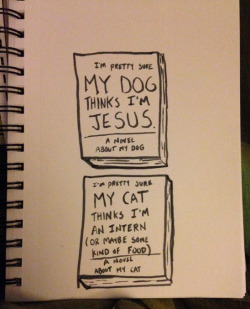 I'M PRETTY SURE
MY DOG
THINKS I'M
JESUS.
A NOVEL
ABOUT MY DOG
I'M PRETTY SURE
MY CAT
THINKS I'M
AN INTERN
(OR MAYBE SOME
KIND OF FOOD)
A NOVEL
ABOUT MY CAT